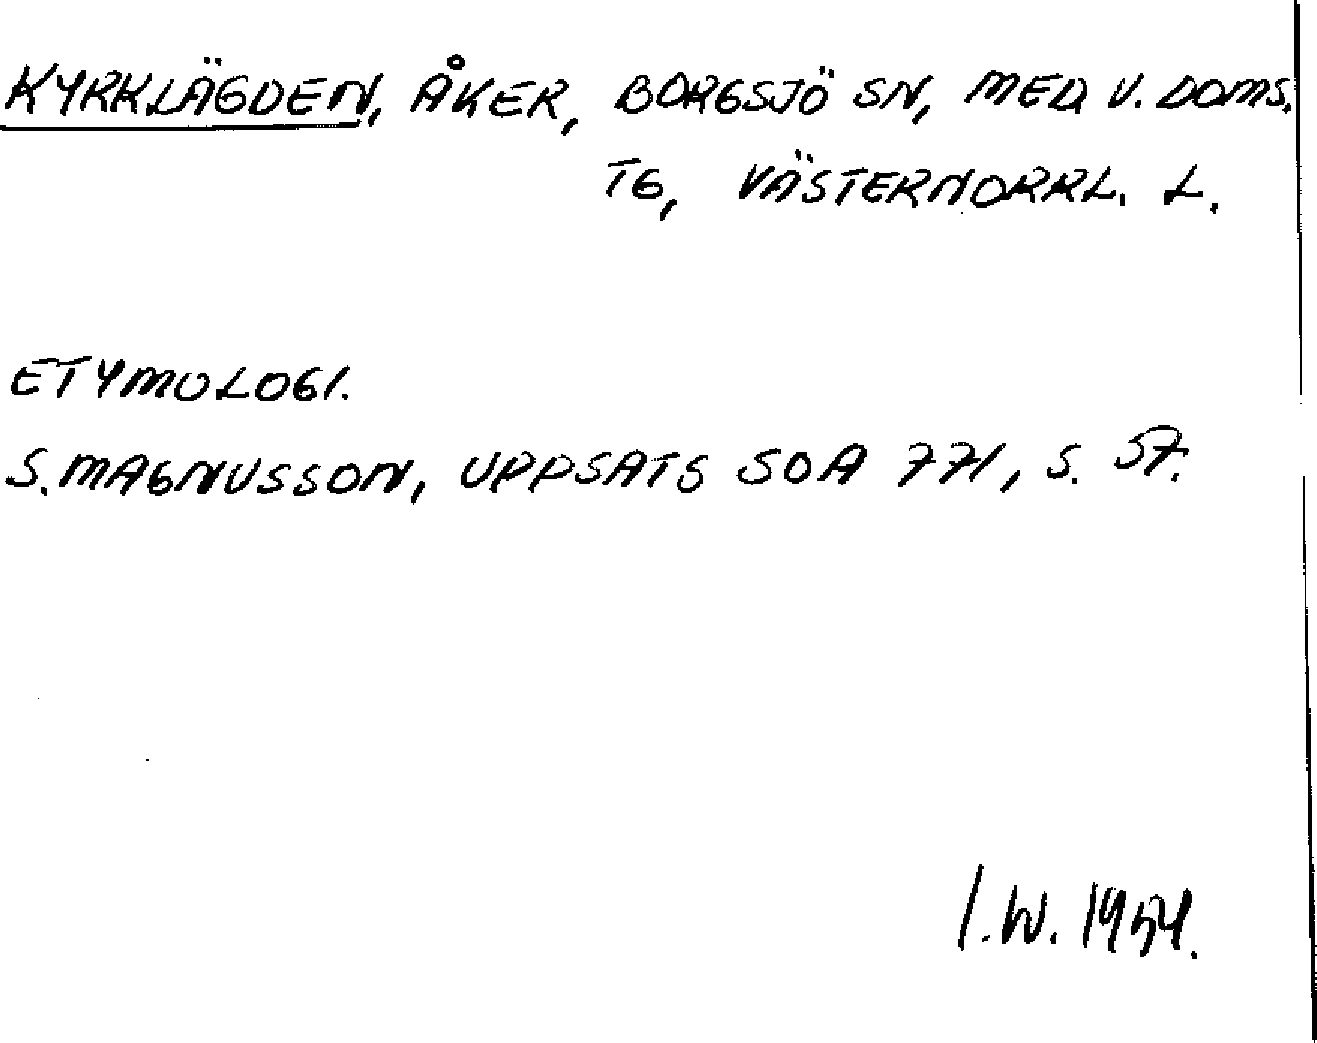 KYRKLÄGDEN, ÅKER, BORGSJÖ SN, MED V. DOMS.
TG, VÄSTERNORRL. L.
ETYMOLOGI.
S. MAGNUSSON, UPPSATS SOA 771, S. 57.
I.W. 1954.